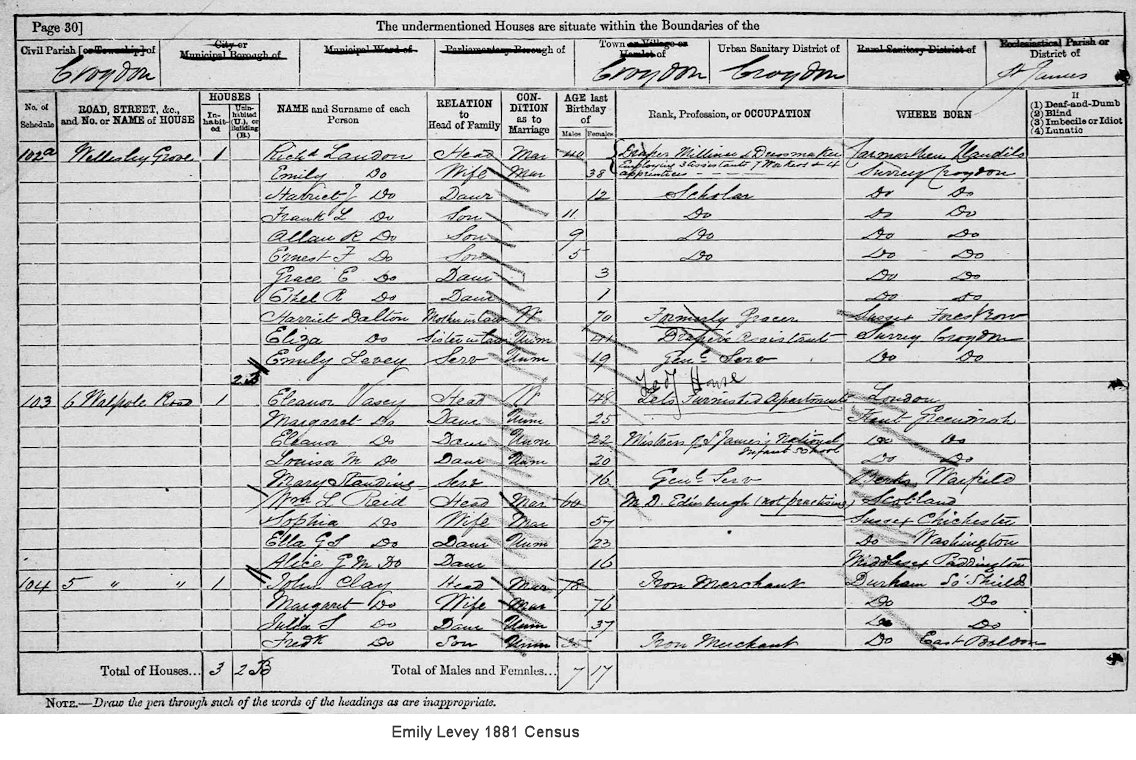 Page 30] The undermentioned Houses are situate within the Boundaries of the
Civil Parish [or Township] of City or Municipal Borough of Municipal Ward of Parliamentary Borough of Town or Village or Hamlet of Urban Sanitary District of Rural Sanitary District of Ecclesiastical Parish or District of
Croydon Croydon Croydon St James
No. of Schedule ROAD, STREET, &c., and No. or NAME of HOUSE HOUSES Inhabited Uninhabited (U.), or Building (B.) NAME and Surname of each Person RELATION to Head of Family CONDITION as to Marriage AGE last Birthday of Males Females Rank, Profession, or OCCUPATION WHERE BORN If (1) Deaf-and-Dumb (2) Blind (3) Imbecile or Idiot (4) Lunatic
102a Wellesley Grove 1 Richd Landon Head Mar 40 Draper Milliner & Dressmaker Carmarthen
Emily Do Wife Mar 38 Employing 3 Assistants 7 Workers & 4 apprentices Surrey Croydon
Harriet J Do Daur 12 Scholar Do Do
Frank L Do Son 11 Do Do Do
Allan R Do Son 9 Do Do Do
Ernest F Do Son 5 Do Do Do
Grace E Do Daur 3 Do Do
Ethel R Do Daur 1 Do Do
Harriet Dalton Mother in law W 70 Formerly Grocer Sussex
Eliza Do Sister in law Unm 41 Drapers Assistant Surrey Croydon
Emily Levey Serv Unm 19 Genl Serv Do Do
2 B
Lodg House
103 6 Walpole Road 1 Eleanor Vasey Head W 48 Lets Furnished Apartments London
Margaret Do Daur Unm 25 Kent Greenwich
Eleanor Do Daur Unm 22 Mistress of St James's National Infant School Do Do
Louisa M Do Daur Unm 20 Do Do
Mary Standing Serv 16 Genl Serv Berks
Wm L Reid Head Mar 64 M.D. Edinburgh (not practising) Scotland
Sophia Do Wife Mar 57 Sussex Chichester
Ella G S Do Daur Unm 23 Do Washington
Alice G M Do Daur 16 Middlesex Paddington
104 5 " " 1 John Clay Head Mar 78 Iron Merchant Durham So Shields
Margaret Do Wife Mar 76 Do Do
Julia S Do Daur Unm 37 Do Do
Fredk Do Son Unm Iron Merchant Do East Boldon
Total of Houses... 3 2 B Total of Males and Females... 7 17
NOTE.—Draw the pen through such of the words of the headings as are inappropriate.
Emily Levey 1881 Census